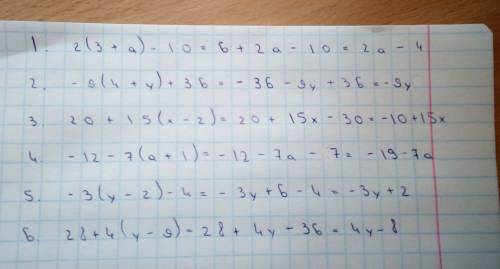 1. 2(3+a)-10=6+2a-10=2a-4
2. -9(4+y)+36=-36-9y+36=-9y
3. 20+15(x-2)=20+15x-30=-10+15x
4. -12-7(a+1)=-12-7a-7=-19-7a
5. -3(y-2)-4=-3y+6-4=-3y+2
6. 28+4(y-9)=28+4y-36=4y-8